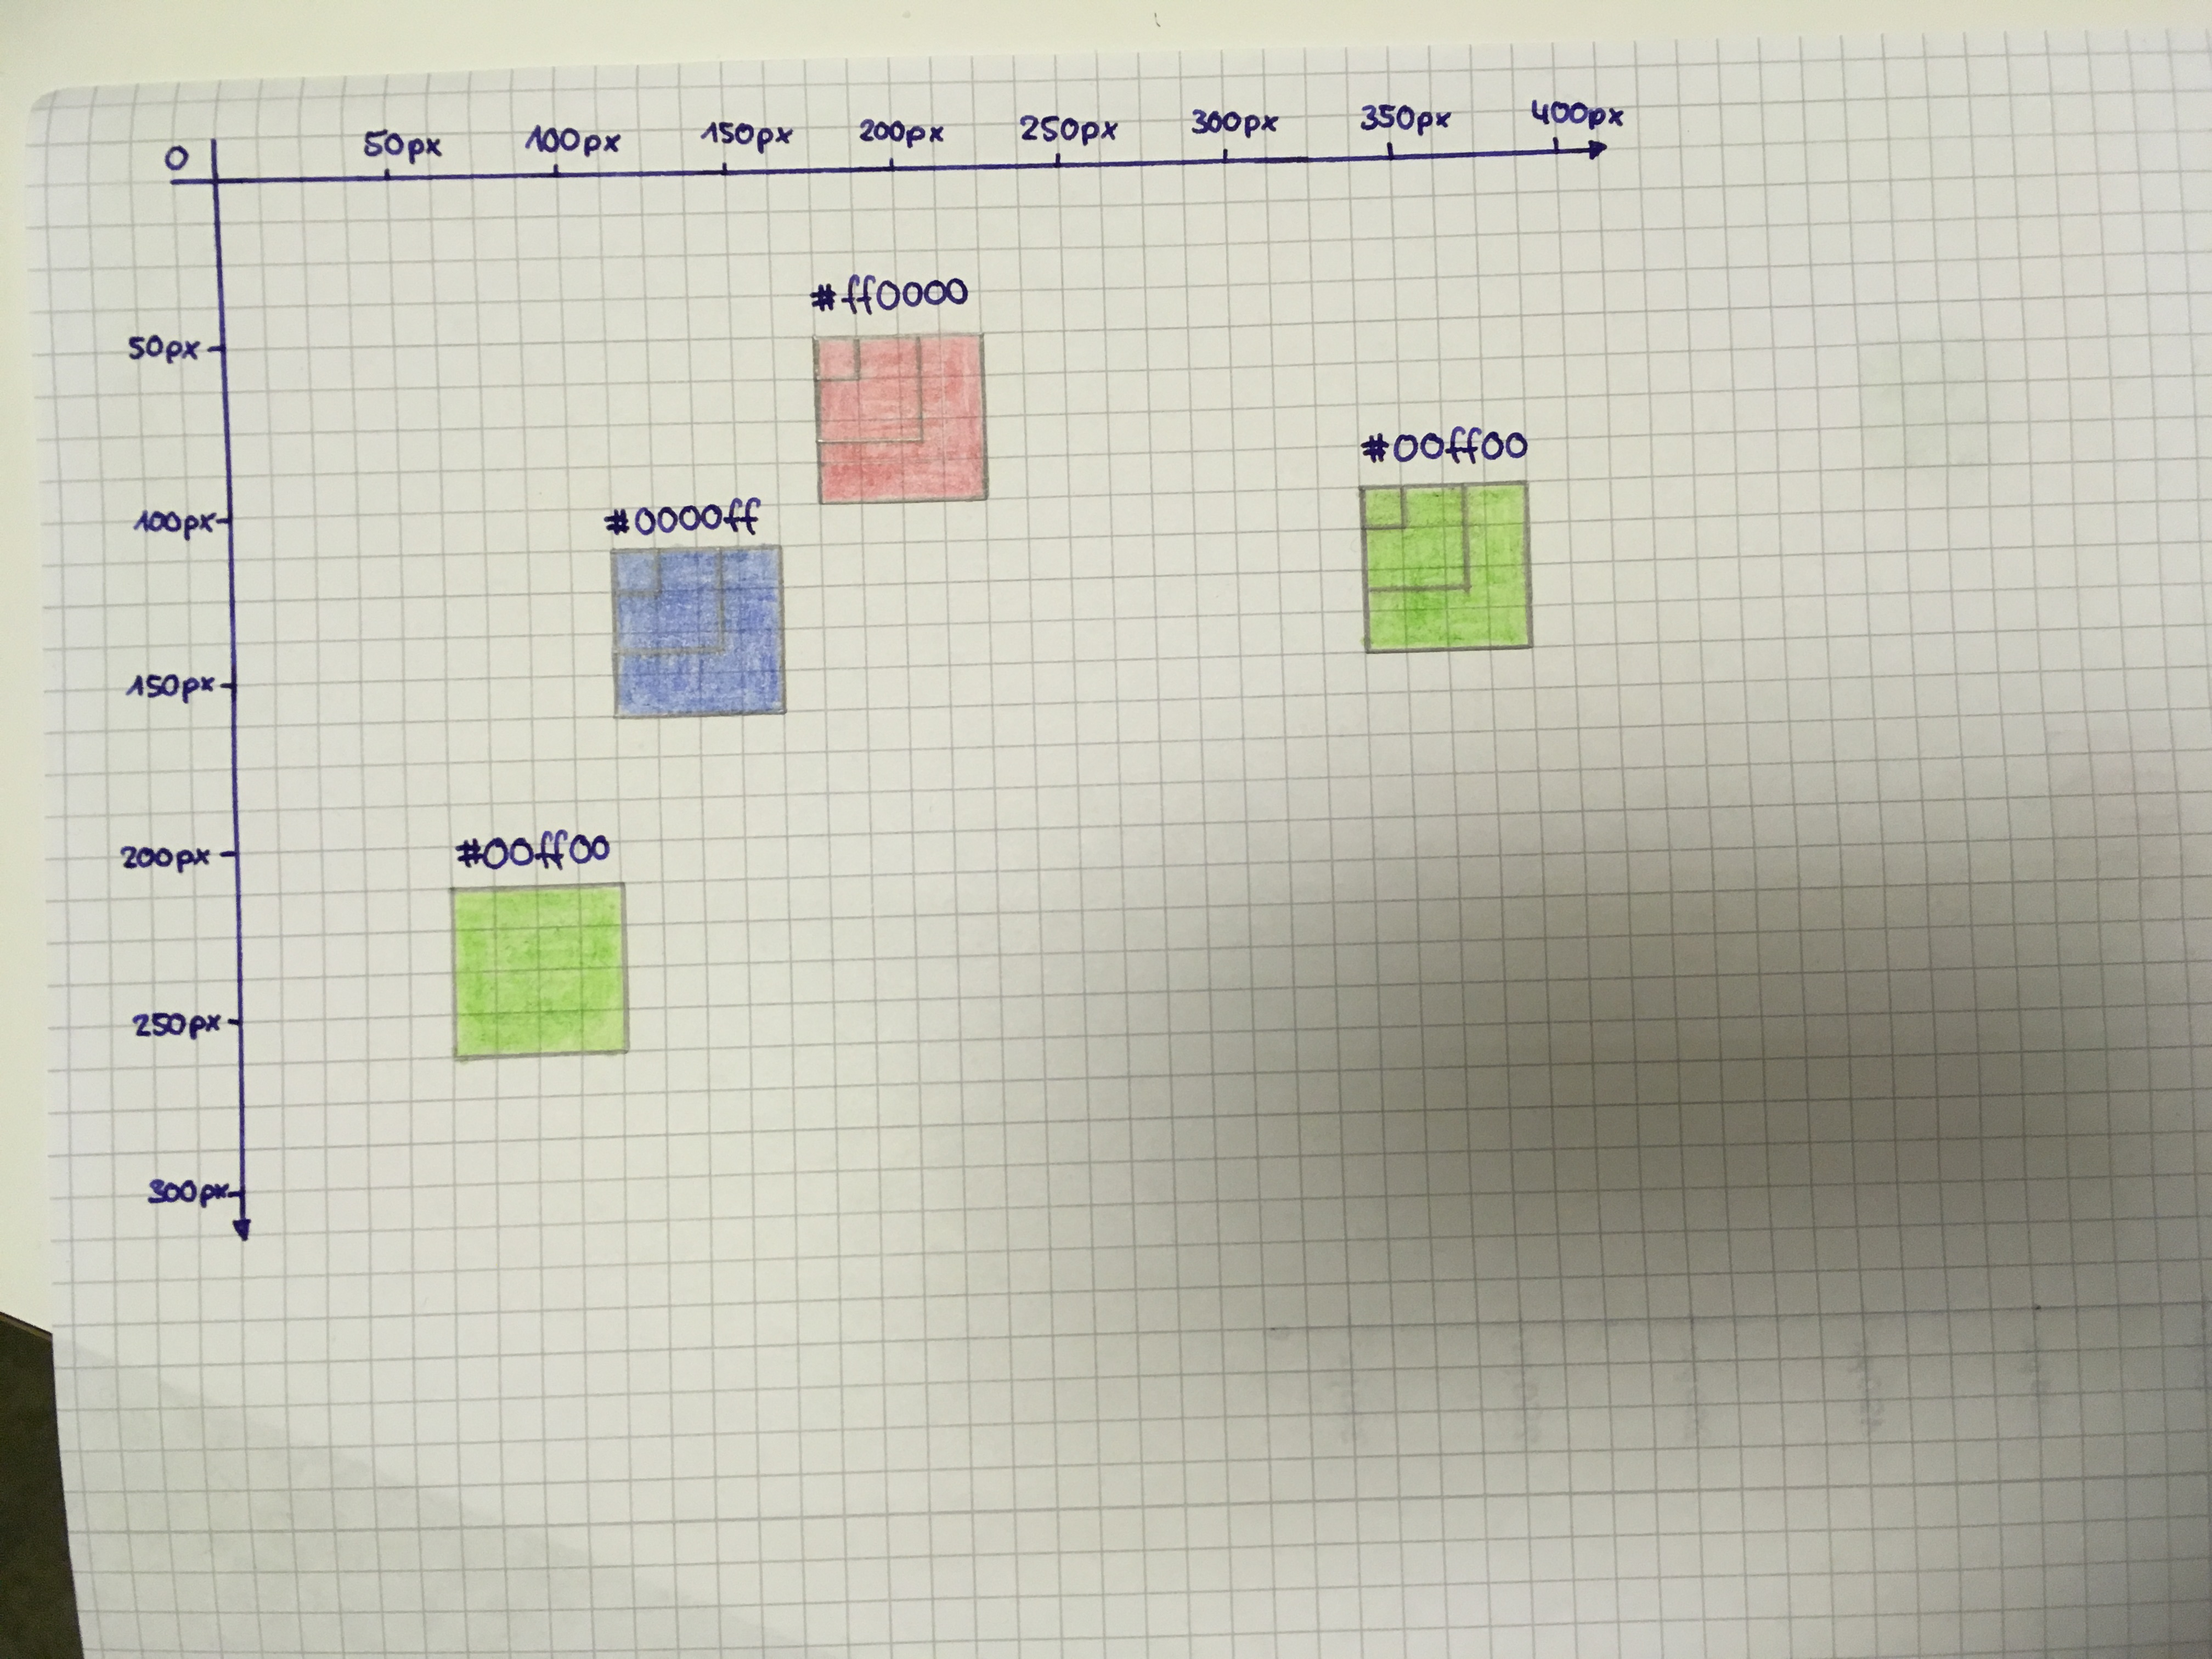 0
50px
100px
150px
200px
250px
300px
350px
400px
50px
100px
150px
200px
250px
300px
#ff0000
#0000ff
#00ff00
#00ff00